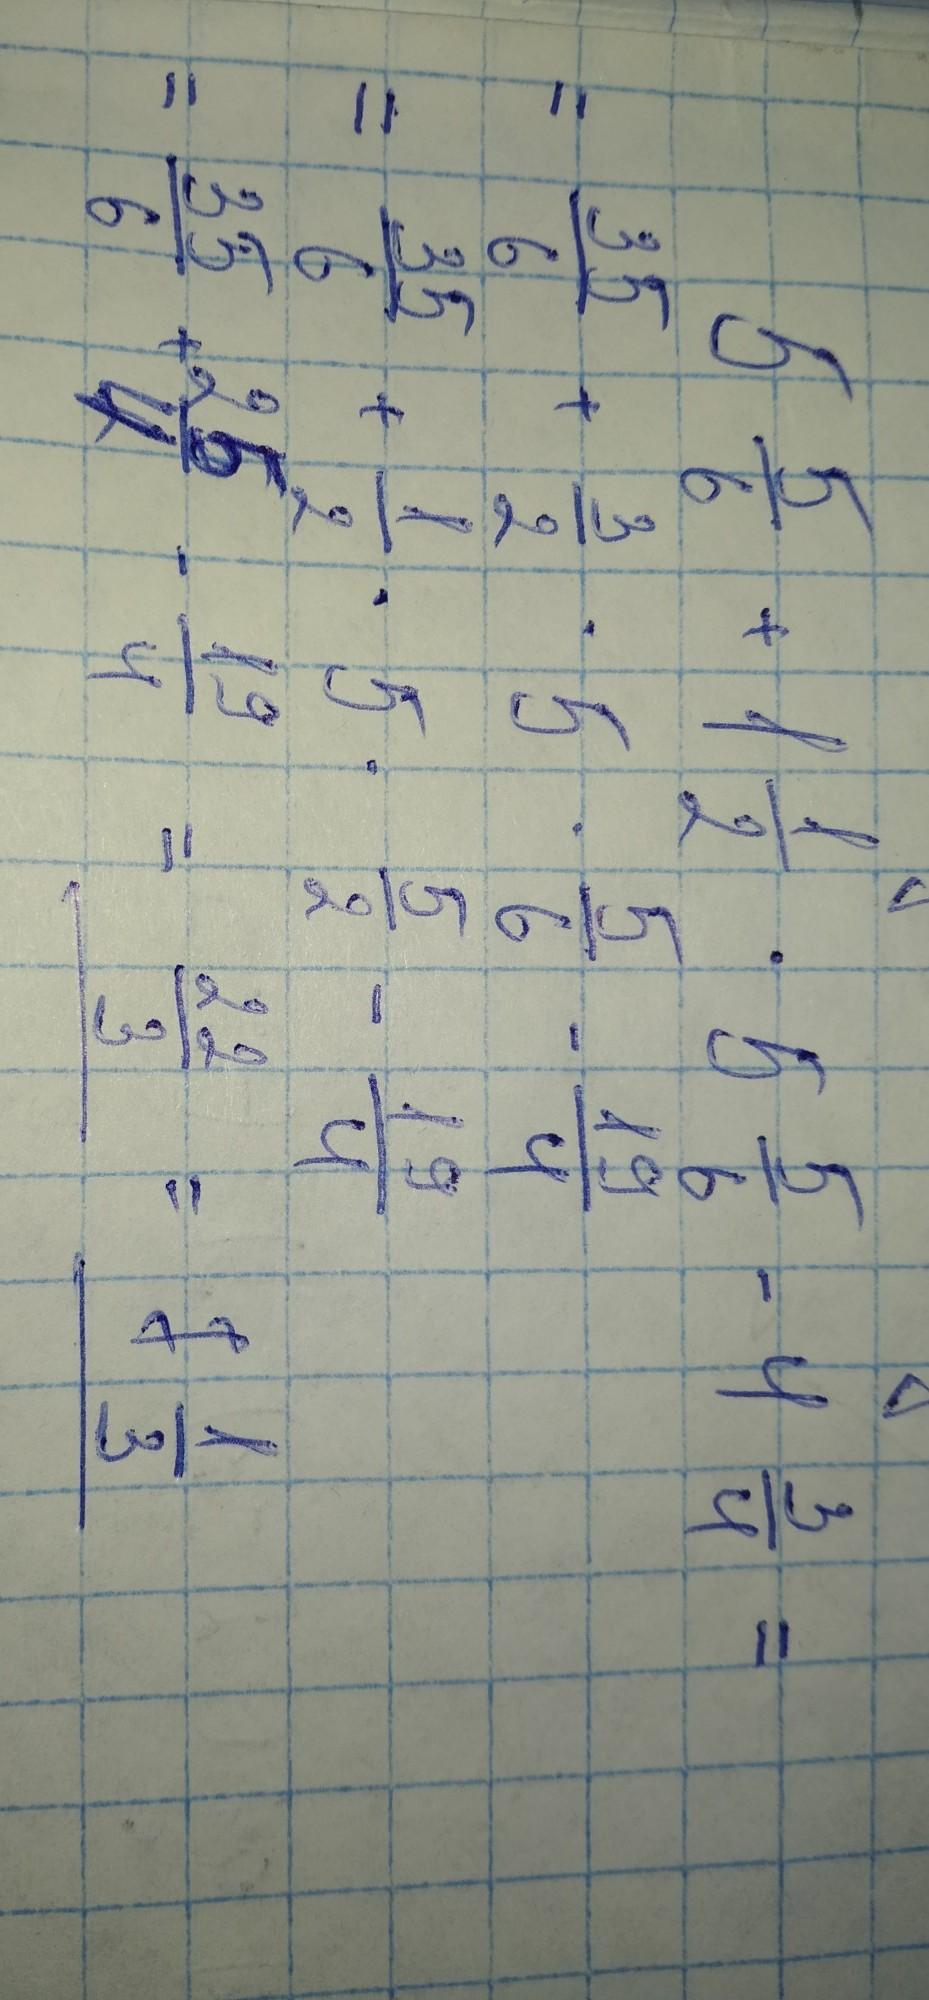 5 5/6 + 1 1/2 · 5 5/6 - 4 3/4 =
= 35/6 + 3/2 · 5 · 5/6 - 19/4
= 35/6 + 1/2 · 5 · 5/2 - 19/4
= 35/6 + 25/4 - 19/4 = 22/3 = 7 1/3